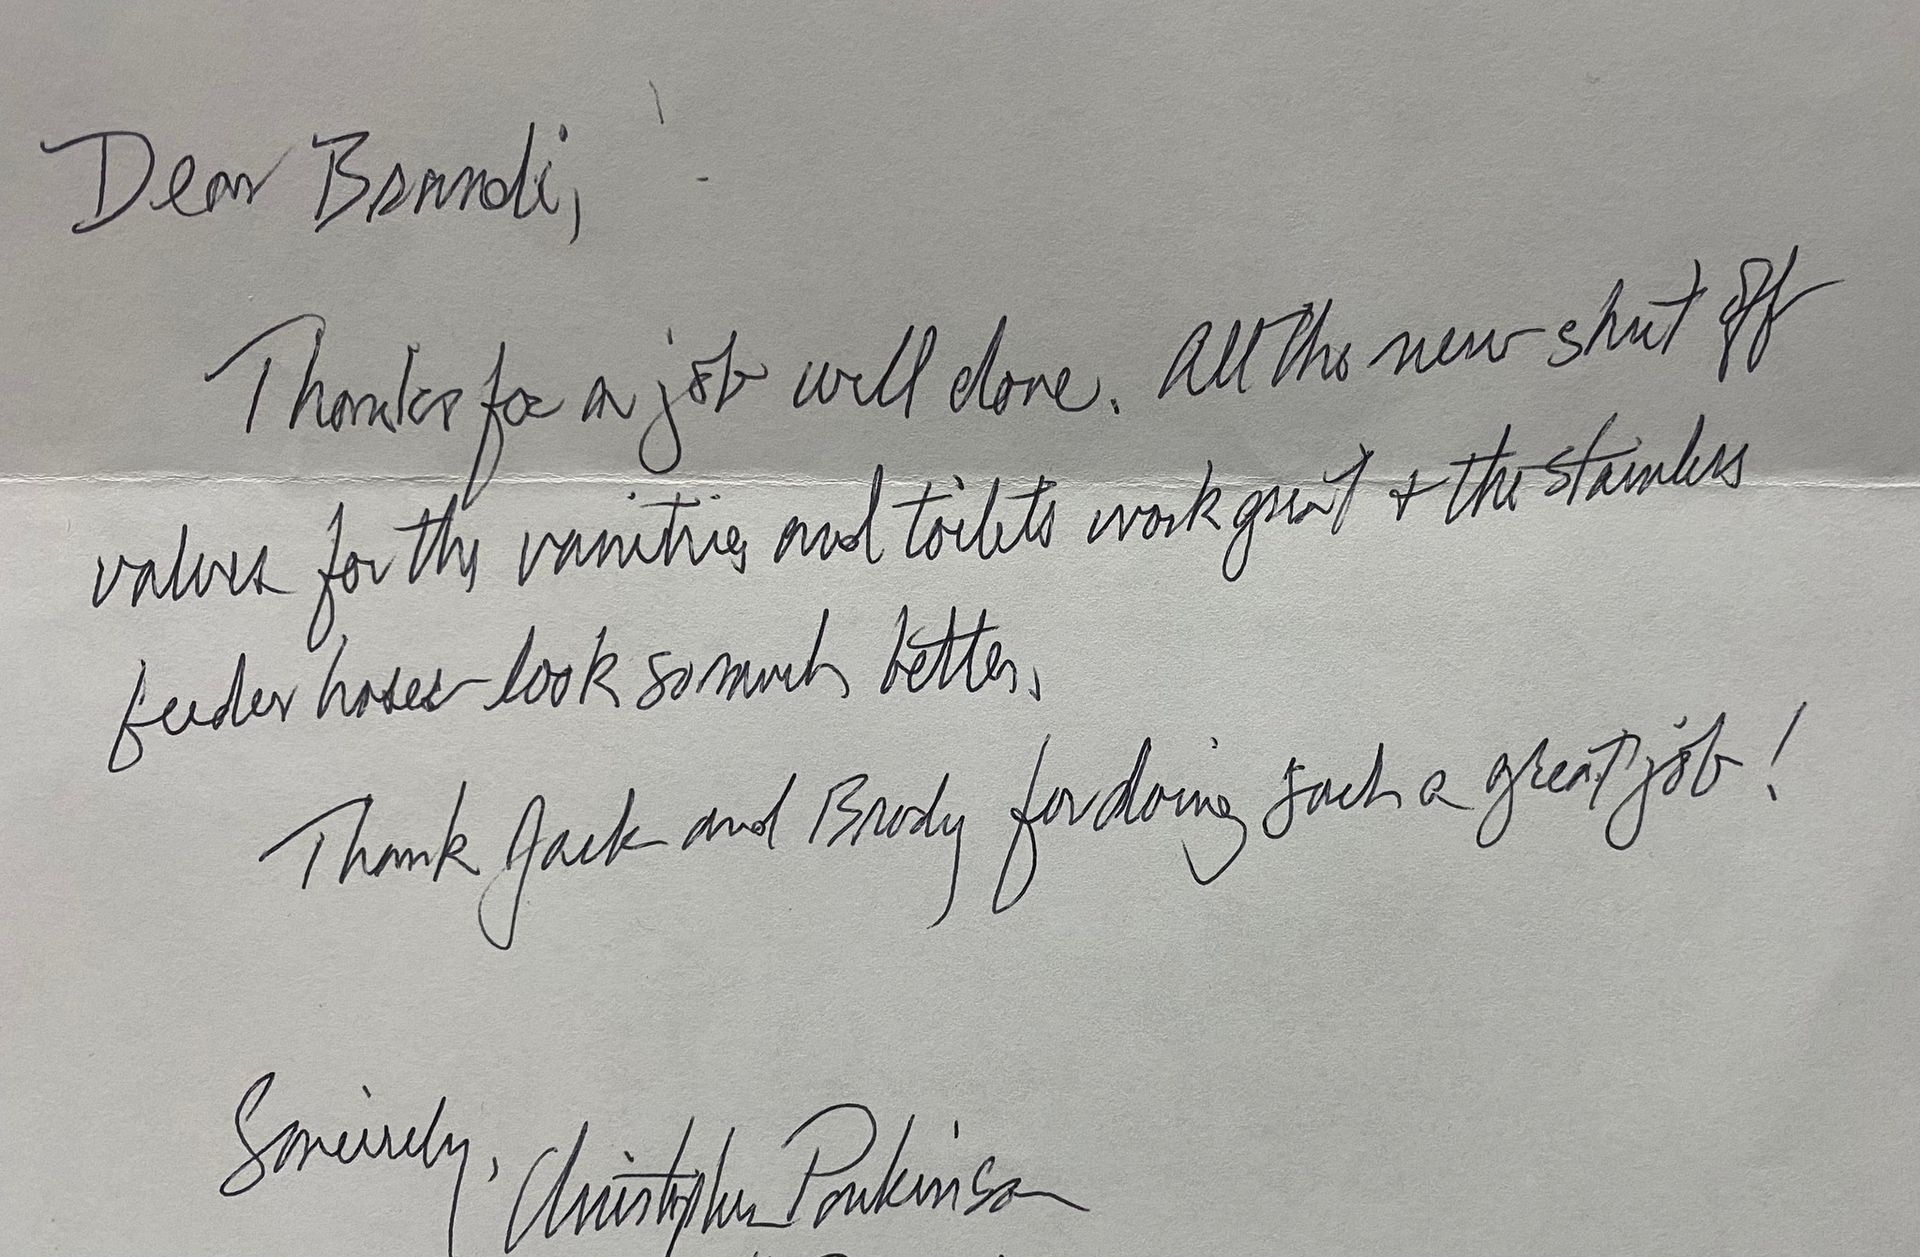 Dear Brandi,
Thanks for a job well done. All the new shut off
valves for the vanities and toilets work great & the stainless
feeder hoses look so much better.
Thank Jack and Brody for doing such a great job!
Sincerely, Christopher Parkinson